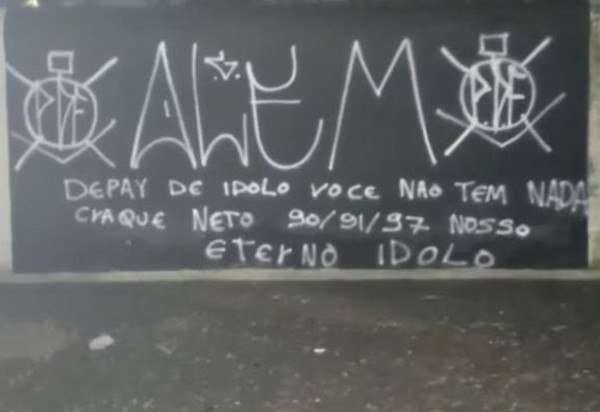 P.D.F ALEM P.D.F
DEPAY DE IDOLO VOCE NAO TEM NADA
CRAQUE NETO 90/91/97 NOSSO
ETERNO IDOLO